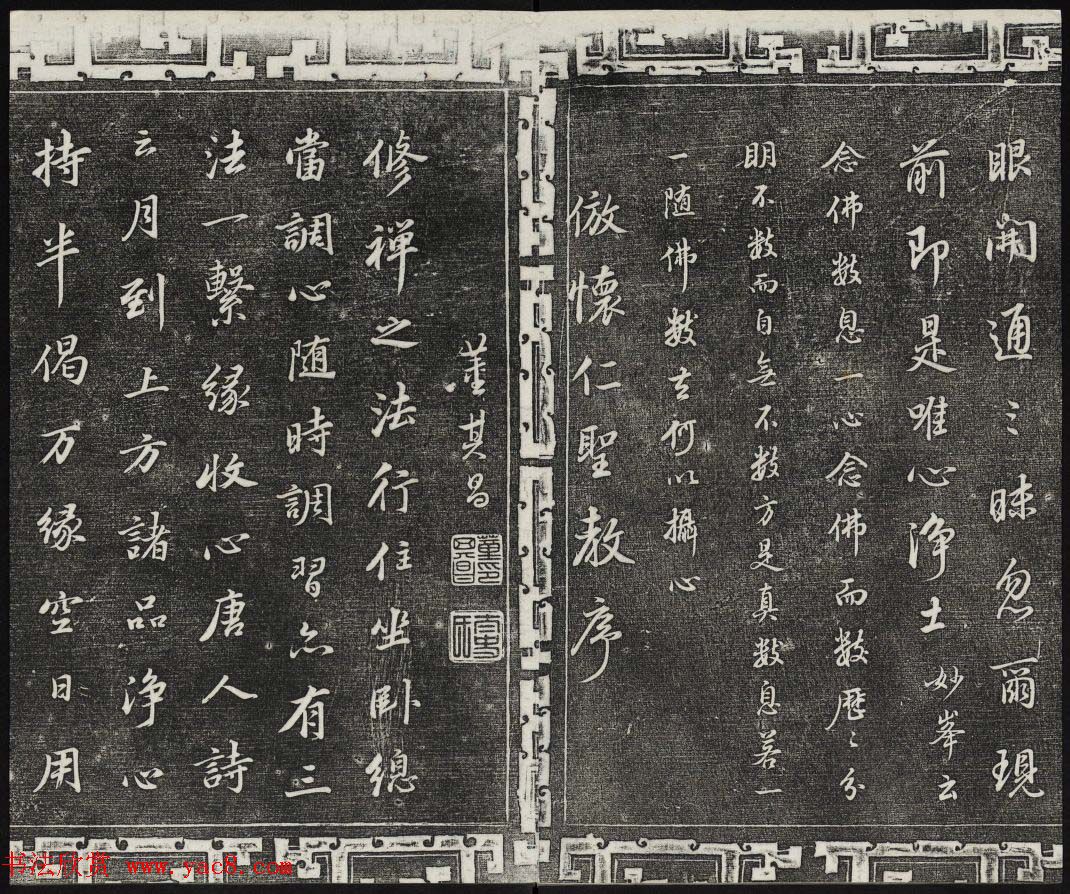 眼開通三昧忽爾現
前即是唯心淨土 妙峯云
念佛數息一心念佛而數歷〻分
明不數而自無不數方是真數息若一
一随佛數去何以攝心
倣懷仁聖教序
董其昌
修禅之法行住坐卧總
當調心随時調習亦有三
法一繫緣收心唐人詩
云月到上方諸品淨心
持半偈万緣空日用
书法欣赏 www.yac8.com